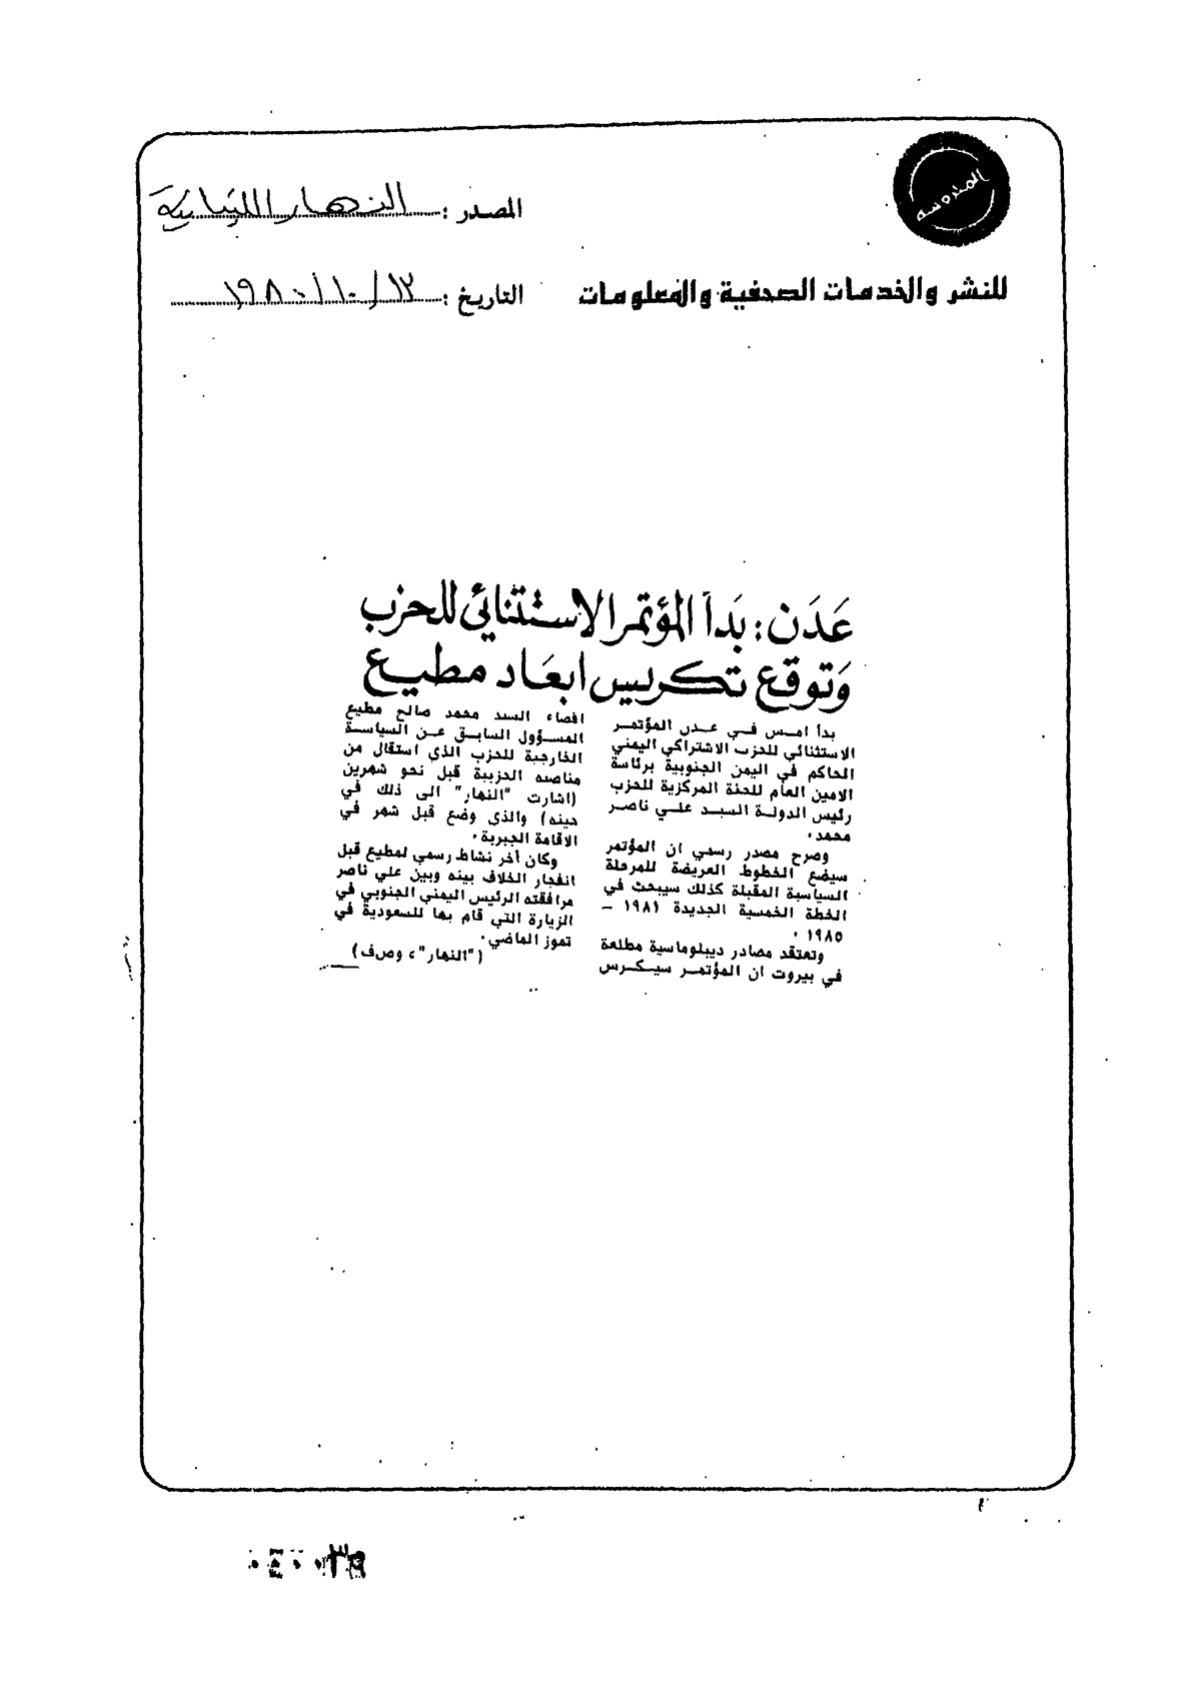 المندوسه
المصدر : النهار اللبنانية
للنشر والخدمات الصحفية والمعلومات
التاريخ : ١٣/ ١٠/ ١٩٨٠
عَدَن : بَدأ المؤتمر الاستثنائي للحزب
وَتوقع تكريس ابعَاد مطيع
بدأ امس في عدن المؤتمر
الاستثنائي للحزب الاشتراكي اليمني
الحاكم في اليمن الجنوبية برئاسة
الامين العام للجنة المركزية للحزب
رئيس الدولة السيد علي ناصر
محمد .
وصرح مصدر رسمي ان المؤتمر
سيضع الخطوط العريضة للمرحلة
السياسية المقبلة كذلك سيبحث في
الخطة الخمسية الجديدة ١٩٨١ –
١٩٨٥ .
وتعتقد مصادر ديبلوماسية مطلعة
في بيروت ان المؤتمر سيكرس
اقصاء السيد محمد صالح مطيع
المسؤول السابق عن السياسة
الخارجية للحزب الذي استقال من
مناصبه الحزبية قبل نحو شهرين
(اشارت "النهار" الى ذلك في
حينه) والذي وضع قبل شهر في
الاقامة الجبرية .
وكان آخر نشاط رسمي لمطيع قبل
انفجار الخلاف بينه وبين علي ناصر
مرافقته الرئيس اليمني الجنوبي في
الزيارة التي قام بها للسعودية في
تموز الماضي .
("النهار"، وصف)